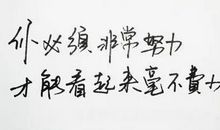 你必须非常努力
才能看起来毫不費力